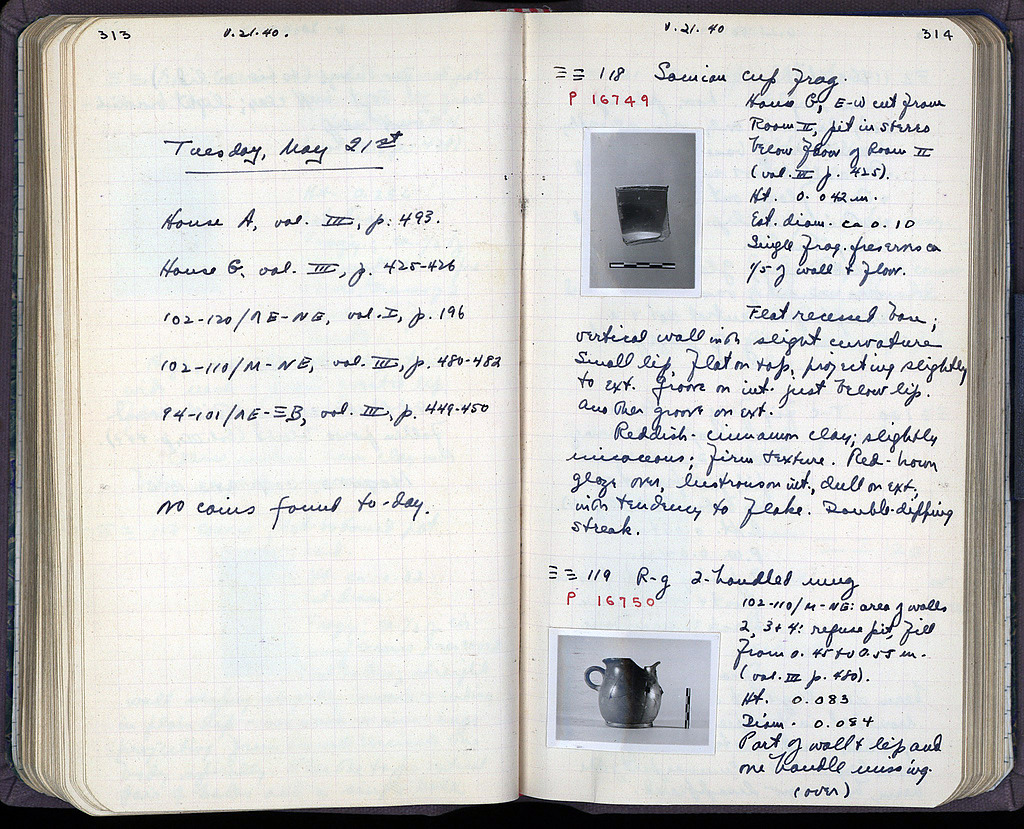 313
V.21.40.
Tuesday, May 21st
House A, vol. III, p. 493.
House G, vol. III, p. 425-426
102-120/ΛΕ-ΝΕ, vol. I, p. 196
102-110/Μ-ΝΕ, vol. III, p. 480-482
94-101/ΛΕ-ΞΒ, vol. III, p. 449-450
No coins found to-day.
V.21.40
314
ΞΞ 118 Samian cup frag.
P 16749
House G, E-W cut from
Room II, pit in stereo
below floor of Room II
(vol. III p. 425).
Ht. 0.042 m.
Est. diam. ca 0.10
Single frag. preserves ca
1/5 of wall + floor.
Flat recessed base;
vertical wall with slight curvature
Small lip, flat on top, projecting slightly
to ext. Groove on int. just below lip.
Another groove on ext.
Reddish-cinnamon clay; slightly
micaceous; firm texture. Red-brown
glaze over, lustrous on int., dull on ext.,
with tendency to flake. Double-dipping
streak.
ΞΞ 119 R-g 2-handled mug
P 16750
102-110/Μ-ΝΕ: area of walls
2, 3+4: refuse pit, fill
from 0.45 to 0.55 m.
(vol. III p. 480).
Ht. 0.083
Diam. 0.084
Part of wall + lip and
one handle missing.
(over)